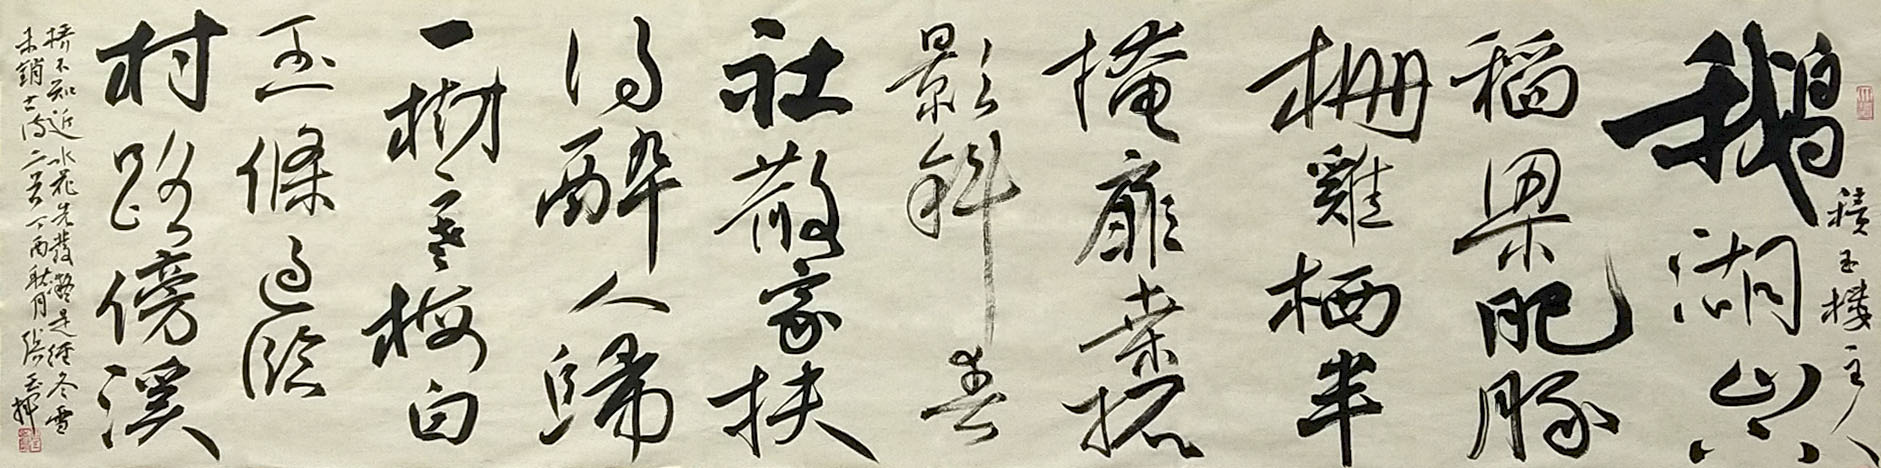 鵝湖山下
積玉樓主人
稻梁肥豚
柵雞栖半
掩扉桑柘
影斜春
社散家々扶
得醉人歸
一樹寒梅白
玉條迥臨
村路傍溪
橋不知近水花先發疑是經冬雪
未銷 古詩二首 丁酉秋月 張玉輝